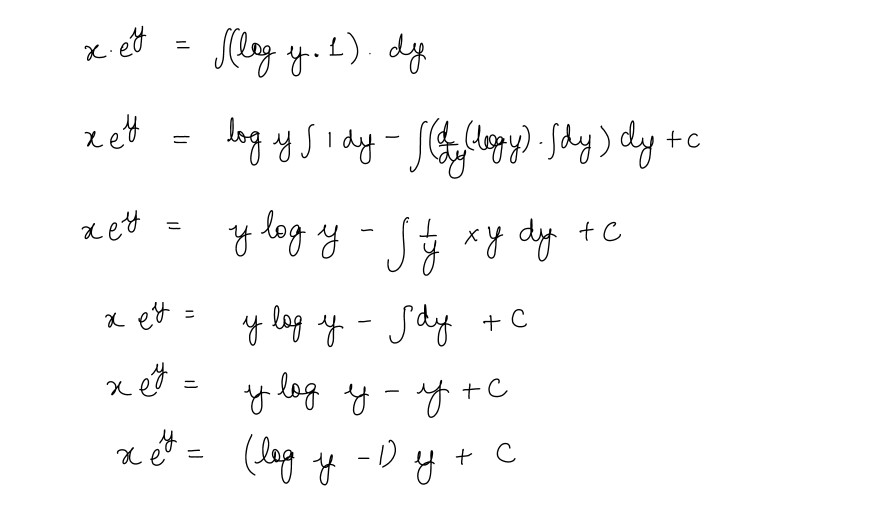 x · e^y = ∫(log y . 1) . dy
x e^y = log y ∫ 1 dy − ∫(d/dy (log y) . ∫dy) dy + c
x e^y = y log y − ∫ 1/y × y dy + C
x e^y = y log y − ∫dy + C
x e^y = y log y − y + C
x e^y = (log y − 1) y + C